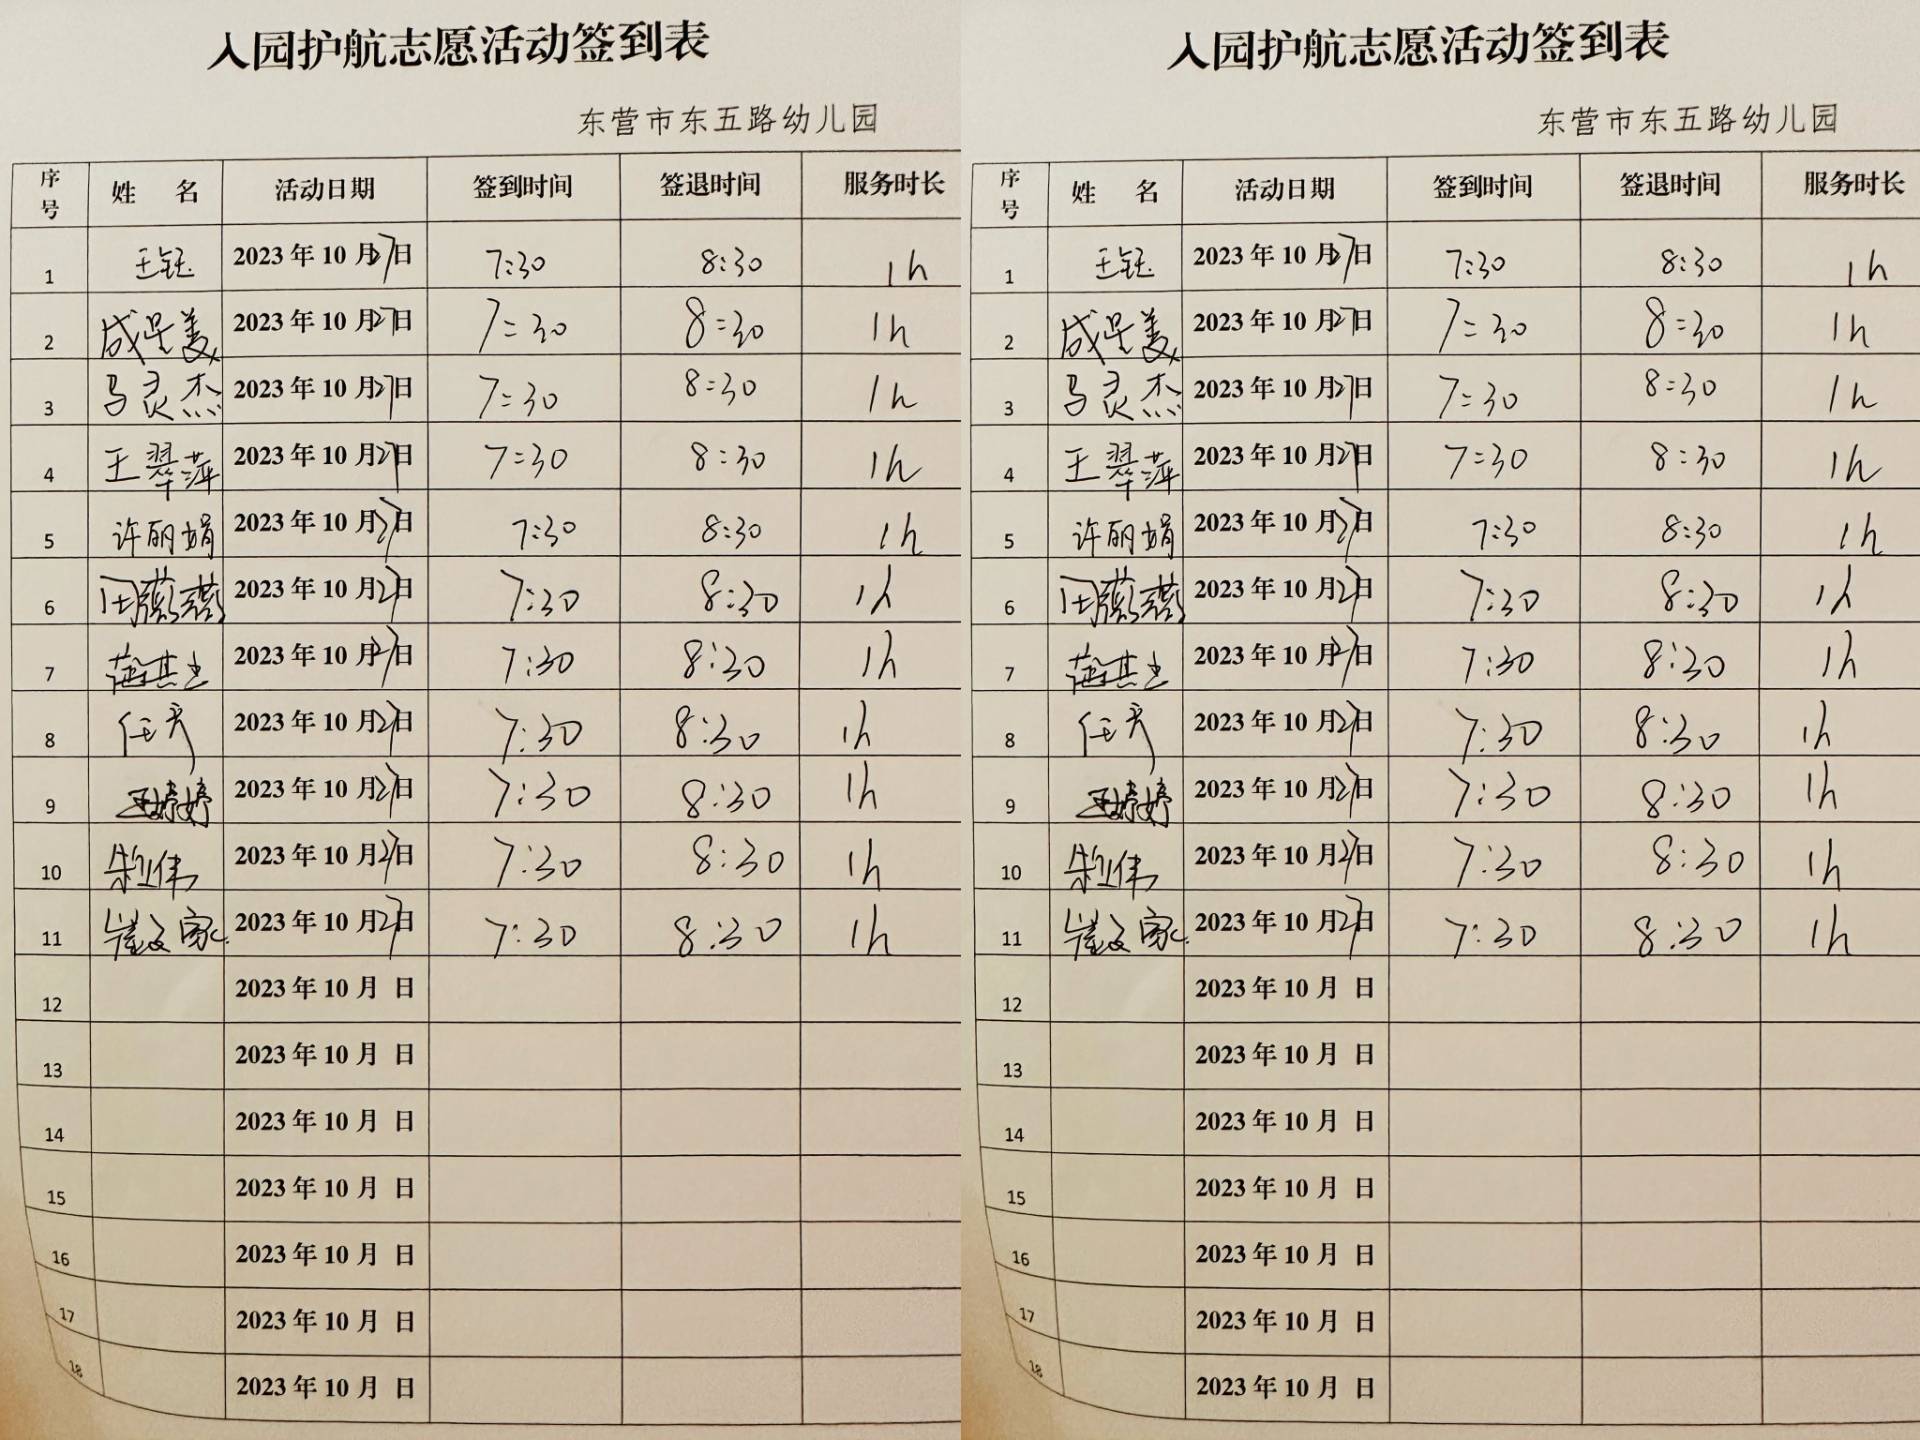 入园护航志愿活动签到表
东营市东五路幼儿园
序号 姓 名 活动日期 签到时间 签退时间 服务时长
1 王钰 2023年10月27日 7:30 8:30 1h
2 2023年10月27日 7:30 8:30 1h
3 马灵杰 2023年10月27日 7:30 8:30 1h
4 王翠萍 2023年10月27日 7:30 8:30 1h
5 许丽娟 2023年10月27日 7:30 8:30 1h
6 2023年10月27日 7:30 8:30 1h
7 2023年10月27日 7:30 8:30 1h
8 2023年10月27日 7:30 8:30 1h
9 王婷婷 2023年10月27日 7:30 8:30 1h
10 2023年10月27日 7:30 8:30 1h
11 崔文家 2023年10月27日 7:30 8:30 1h
12 2023年10月 日
13 2023年10月 日
14 2023年10月 日
15 2023年10月 日
16 2023年10月 日
17 2023年10月 日
18 2023年10月 日
入园护航志愿活动签到表
东营市东五路幼儿园
序号 姓 名 活动日期 签到时间 签退时间 服务时长
1 王钰 2023年10月27日 7:30 8:30 1h
2 2023年10月27日 7:30 8:30 1h
3 马灵杰 2023年10月27日 7:30 8:30 1h
4 王翠萍 2023年10月27日 7:30 8:30 1h
5 许丽娟 2023年10月27日 7:30 8:30 1h
6 2023年10月27日 7:30 8:30 1h
7 2023年10月27日 7:30 8:30 1h
8 2023年10月27日 7:30 8:30 1h
9 王婷婷 2023年10月27日 7:30 8:30 1h
10 2023年10月27日 7:30 8:30 1h
11 崔文家 2023年10月27日 7:30 8:30 1h
12 2023年10月 日
13 2023年10月 日
14 2023年10月 日
15 2023年10月 日
16 2023年10月 日
17 2023年10月 日
18 2023年10月 日